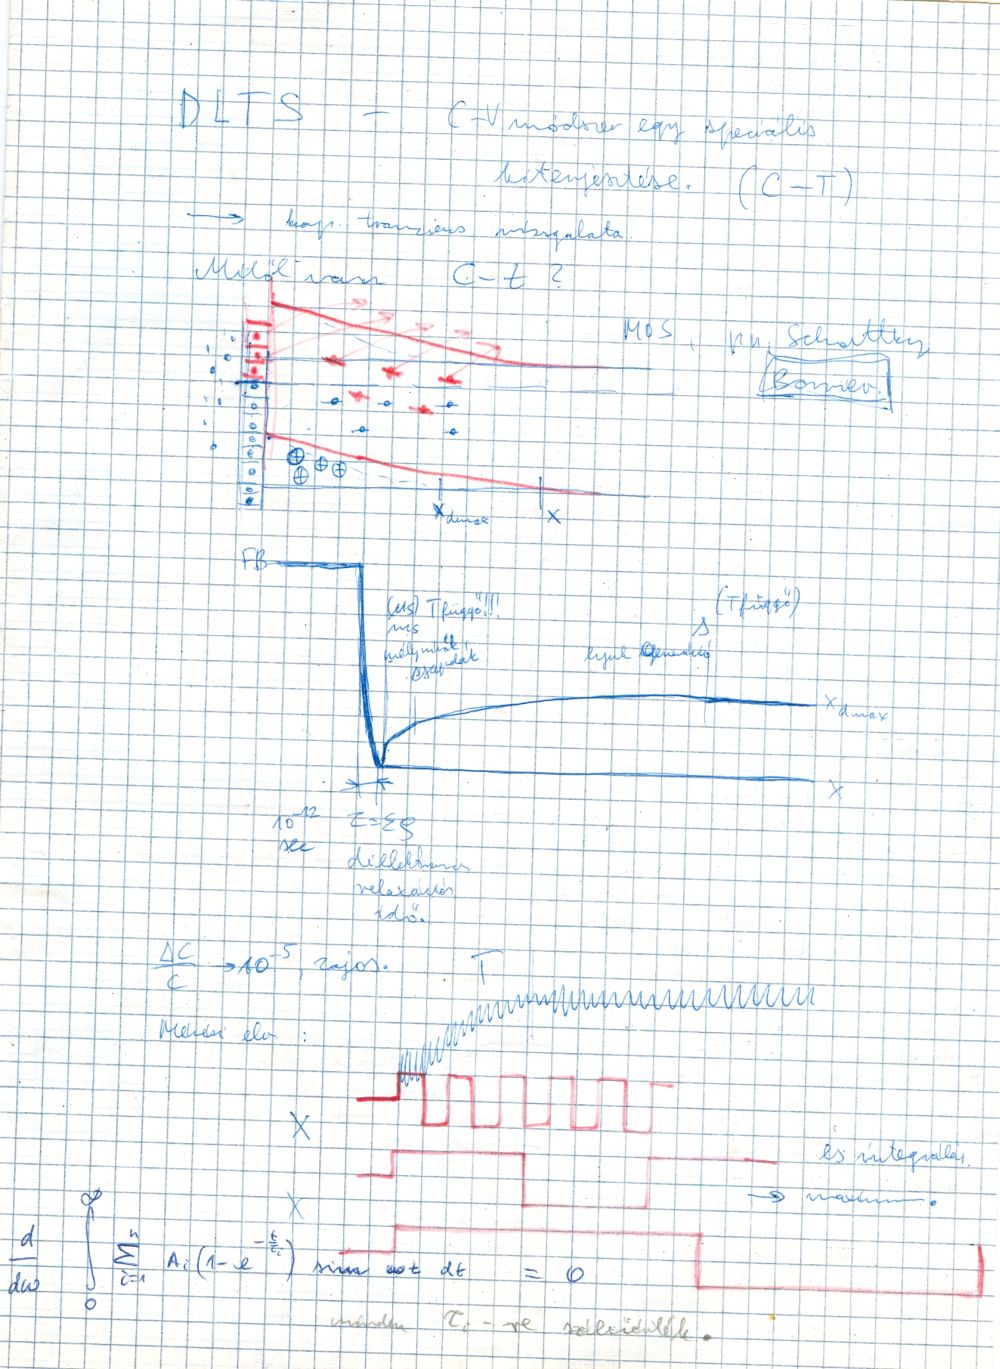 DLTS – C-V módszer egy speciális
kiterjesztése. (C-T)
→ kap. tranziens vizsgálata
Mitől van C-t ?
MOS, pn, Schottky
Barrier.
x dmax
x
FB
(μs) T függő!!!
ms
mélynívók,
csapdák
(T függő)
lyuk generáció
x dmax
x
10⁻¹² sec
τ=ερ
dielektromos
relaxációs
idő.
ΔC/C → 10⁻⁵, zajos.
T
Mérési elv :
X
és integrálás
→ maximum.
X
d/dω ∫₀^∞ Σ_{i=1}^n Aᵢ(1-e^{-t/τᵢ}) sin ωt dt = 0
minden τᵢ-re